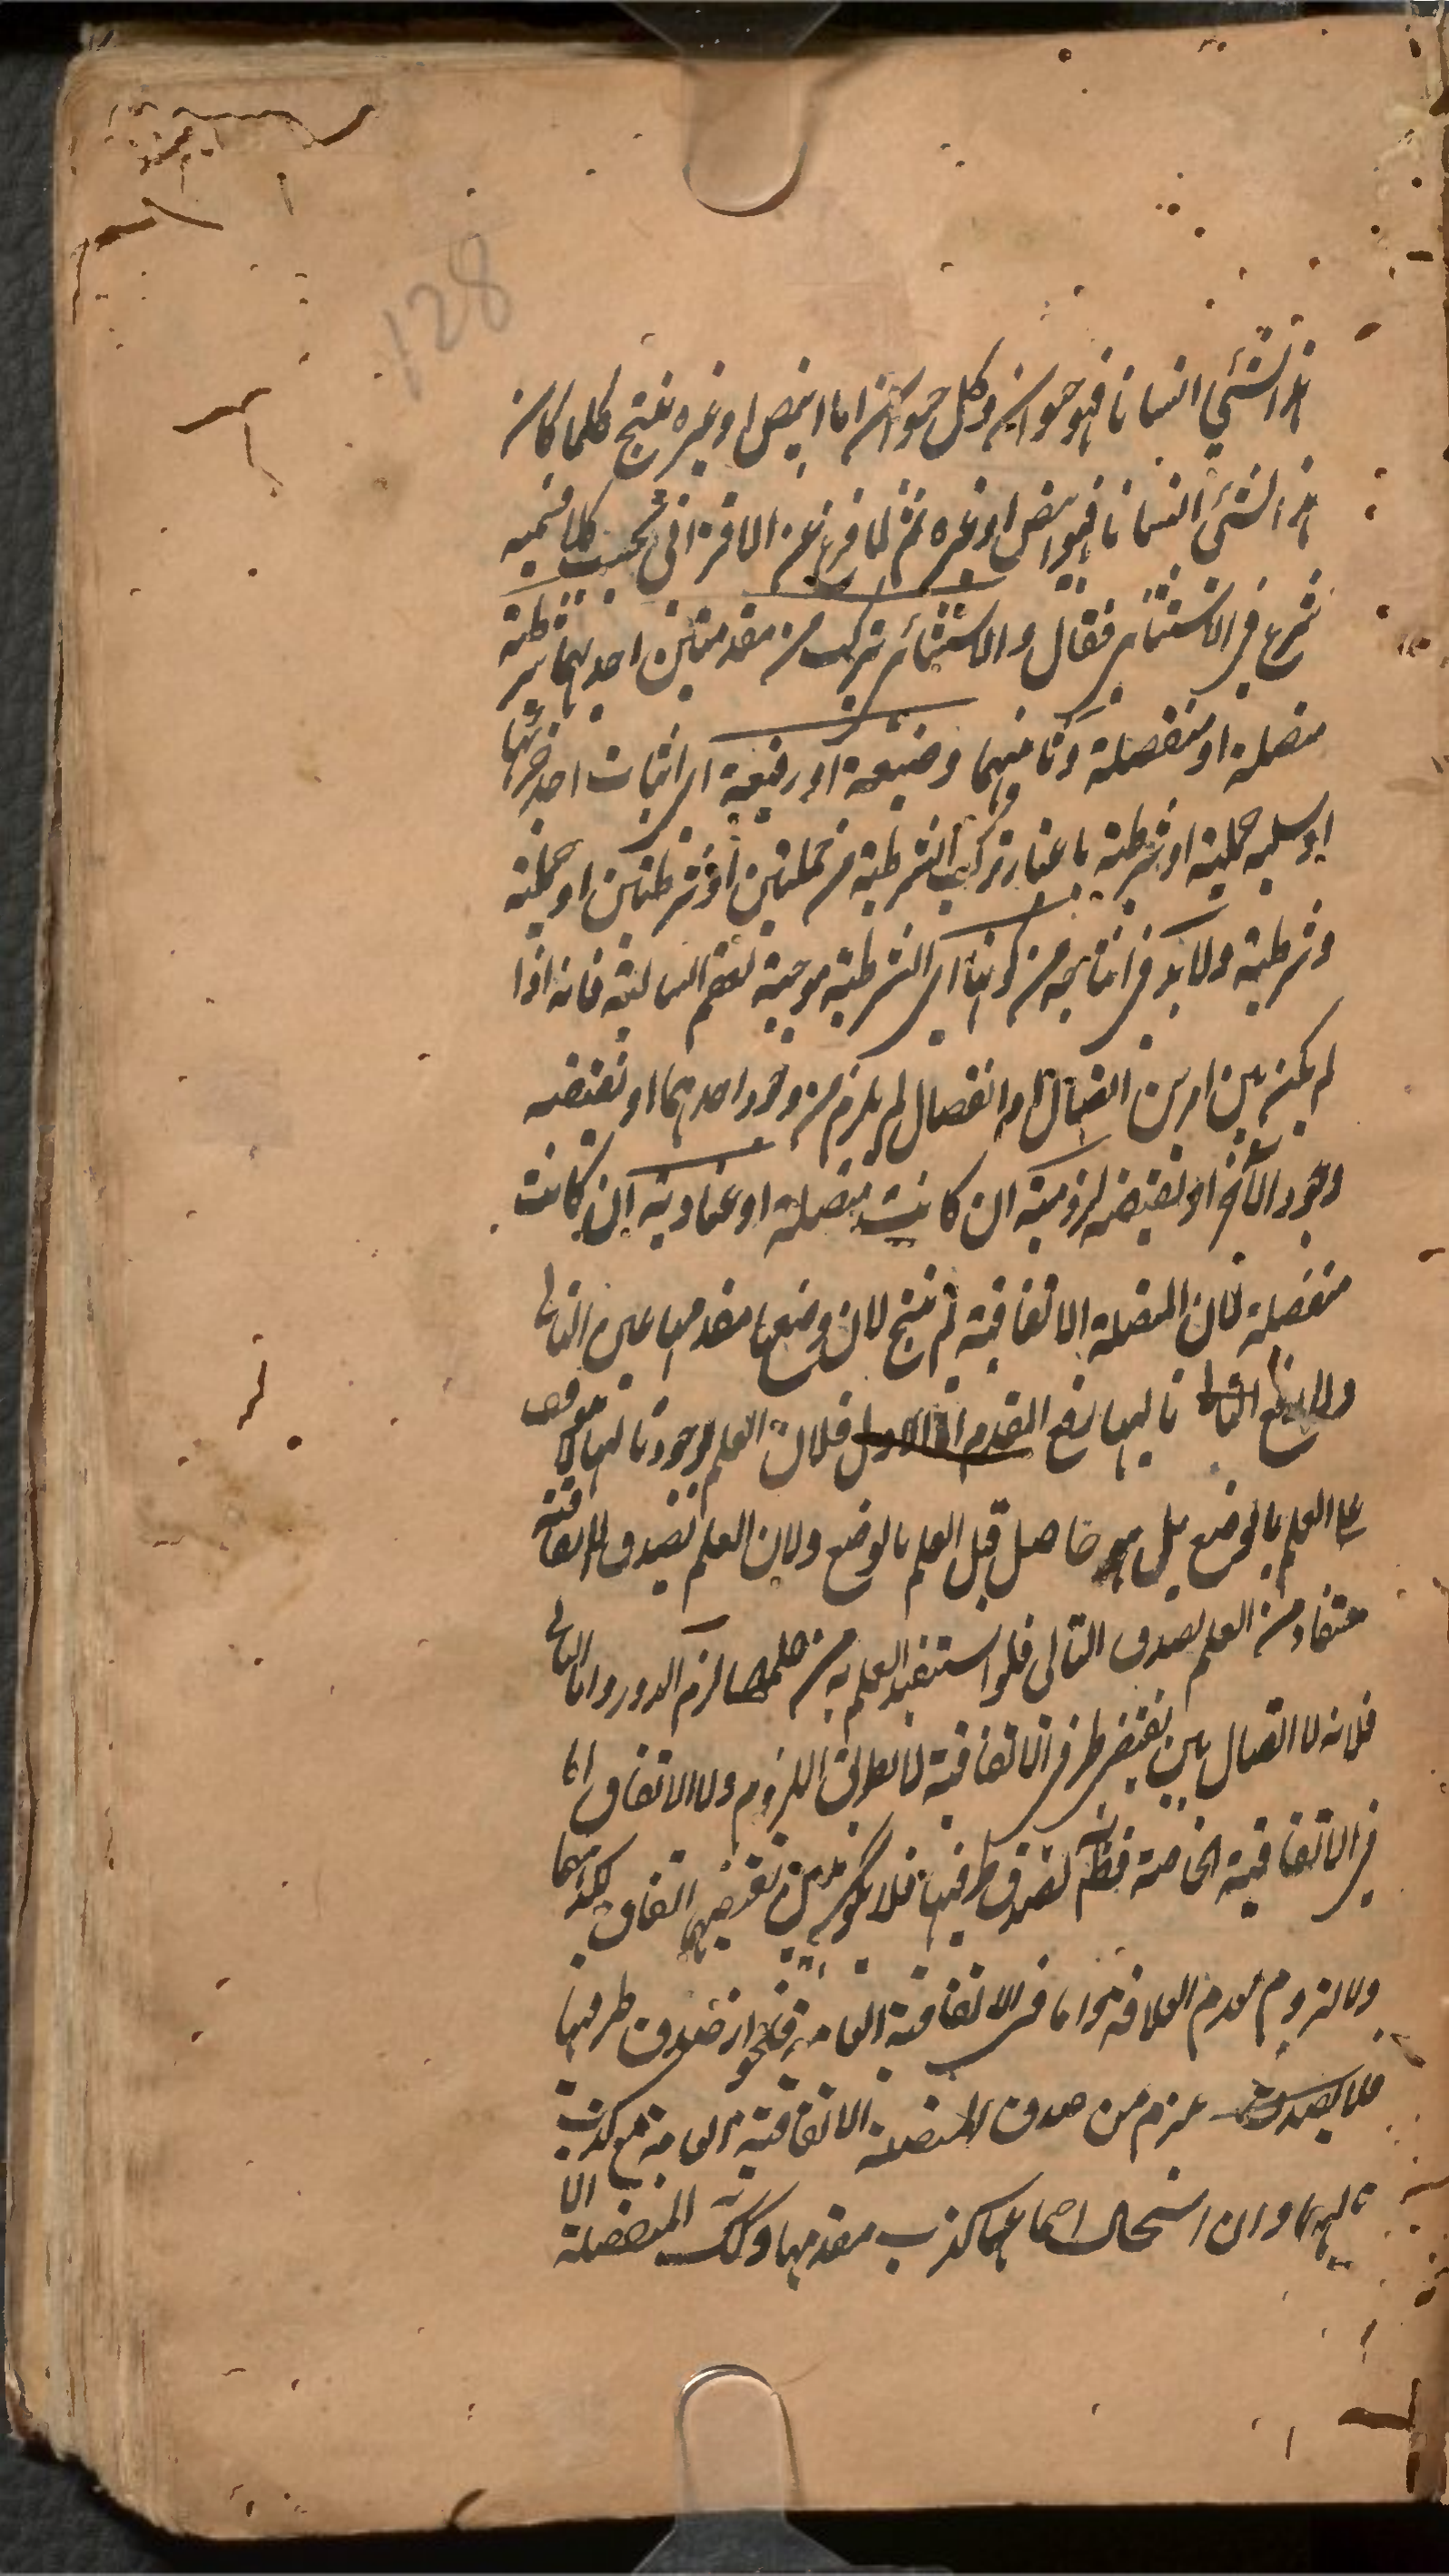 128
هذا الشئ انسانا فهو حيوان وكل حيوان اما ابيض او غيره ينتج كلما كان
هذا الشئ انسانا فهو ابيض او غيره ثم لما فرغ عن الاقترانى بحسب كلا قسميه
شرع فى الاستثنائى فقال والاستثنائى تركب من مقدمتين احديهما شرطية
متصلة او منفصلة وثانيتهما وضعية او رفعية اى اثبات احد جزئيها
او سلبه حملية او شرطية باعتبار تركب الشرطية من حمليتين او شرطيتين او حملية
وشرطية ولا بد فى انتاجه من كونها اى الشرطية موجبة لعقم السالبة فانه اذا
لم يكن بين امرين اتصال او انفصال لم يلزم من وجود احدهما او نقيضه
وجود الآخر او نقيضه لزومية ان كانت متصلة او عنادية ان كانت
منفصلة لان المتصلة الاتفاقية لم ينتج لان وضعها مقدمها عين التالى
ولا رفع تاليها رفع المقدم اما الاول فلان العلم بوجود تاليها لا موقف
على العلم بالوضع بل هو حاصل قبل العلم بالوضع ولان العلم بصدق الاتفاقية
مستفاد من العلم بصدق التالى فلو استفيد العلم به من لزم الدور واما الثانى
فلانه لا اتصال بين نقيضى طرفى الاتفاقية لا بطريق اللزوم ولا الاتفاق اما
فى الاتفاقية الخاصة لصدق طرفيها فلا يكون بين نقيضيهما اتفاق لكذبهما
ولا لزوم لعدم العلاقة واما فى الاتفاقية العامة فلجواز صدق طرفيها
فلا يلزم من صدق المتصلة الاتفاقية العامة مع كذب
تاليها وان استحال اجتماعهما كذب مقدمها وكذلك المنفصلة
الا